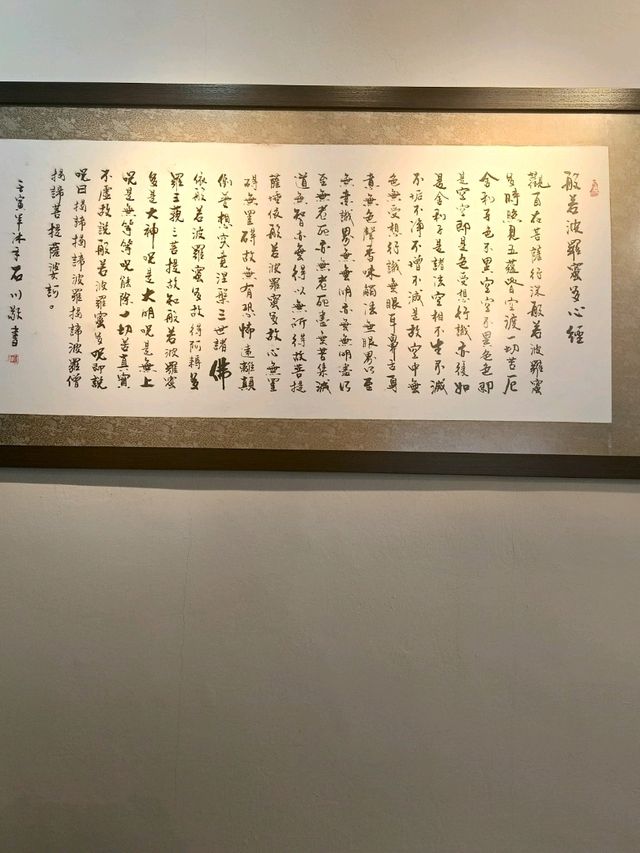 般若波羅蜜多心經
觀自在菩薩行深般若波羅蜜
多時照見五蘊皆空渡一切苦厄
舍利子色不異空空不異色色即
是空空即是色受想行識亦復如
是舍利子是諸法空相不生不滅
不垢不淨不增不減是故空中無
色無受想行識無眼耳鼻舌身
意無色聲香味觸法無眼界以至
無意識界無無明亦無無明盡乃
至無老死亦無老死盡無苦集滅
道無智亦無得以無所得故菩提
薩埵依般若波羅蜜多故心無罣
礙無罣礙故無有恐怖遠離顛
倒夢想究竟涅槃三世諸佛
依般若波羅蜜多故得阿耨多
羅三藐三菩提故知般若波羅蜜
多是大神咒是大明咒是無上
咒是無等等咒能除一切苦真實
不虛故說般若波羅蜜多咒即說
咒曰揭諦揭諦波羅揭諦波羅僧
揭諦菩提薩婆訶。
壬寅年沐手石川敬書